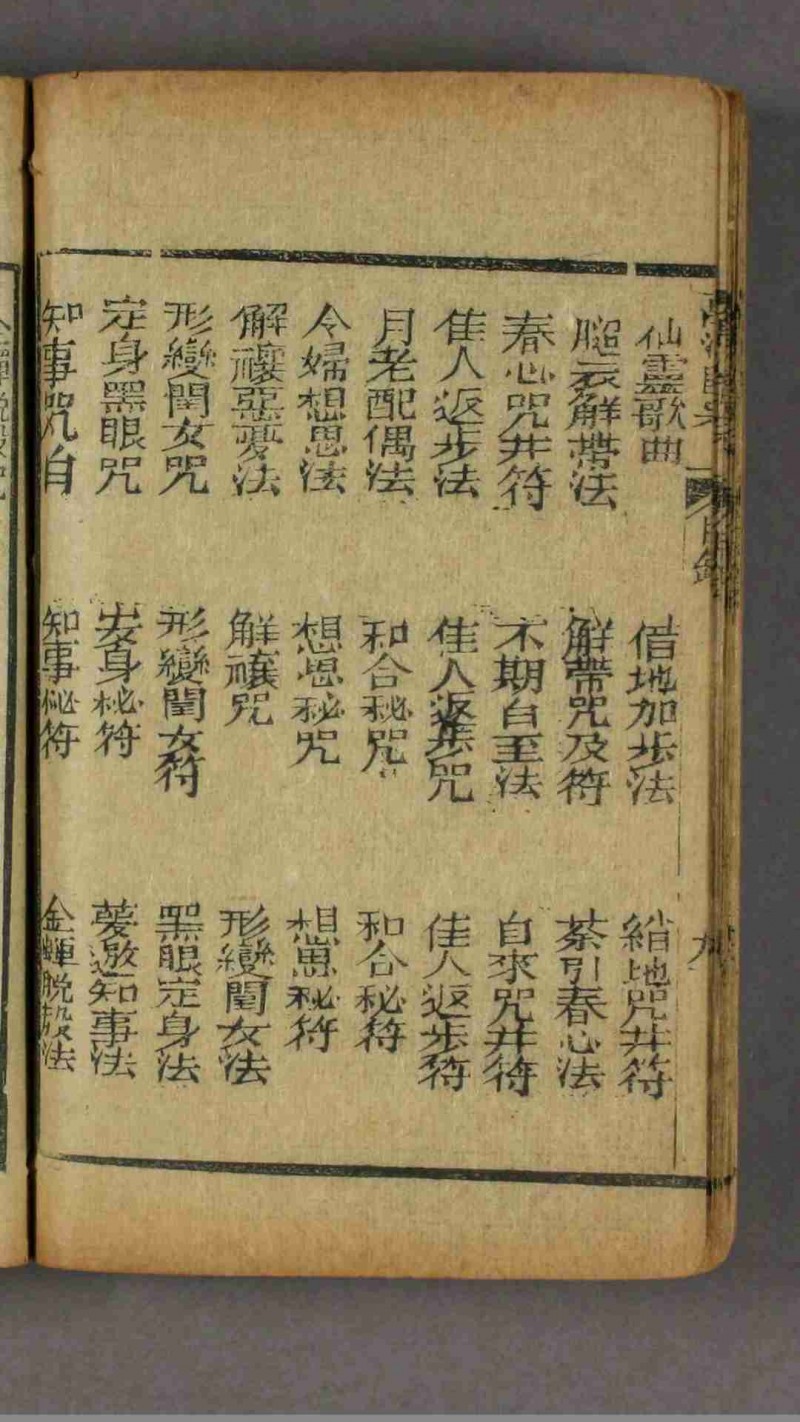 仙灵歌曲 借地加步法 縮地咒并符
腿衰解帶法 解帶咒及符 茶引春心法
春心咒并符 不期自至法 自來咒并符
佳人返步法 佳人返步咒 佳人返步符
月老配偶法 和合秘咒 和合秘符
令婦想思法 想思秘咒 想思秘符
解禳惡夢法 解禳咒 形變閨女法
形變閨女咒 形變閨女符 黑眼定身法
定身黑眼咒 安身秘符 夢邀知事法
知事咒自 知事秘符 金蟬脱殼法
目錄